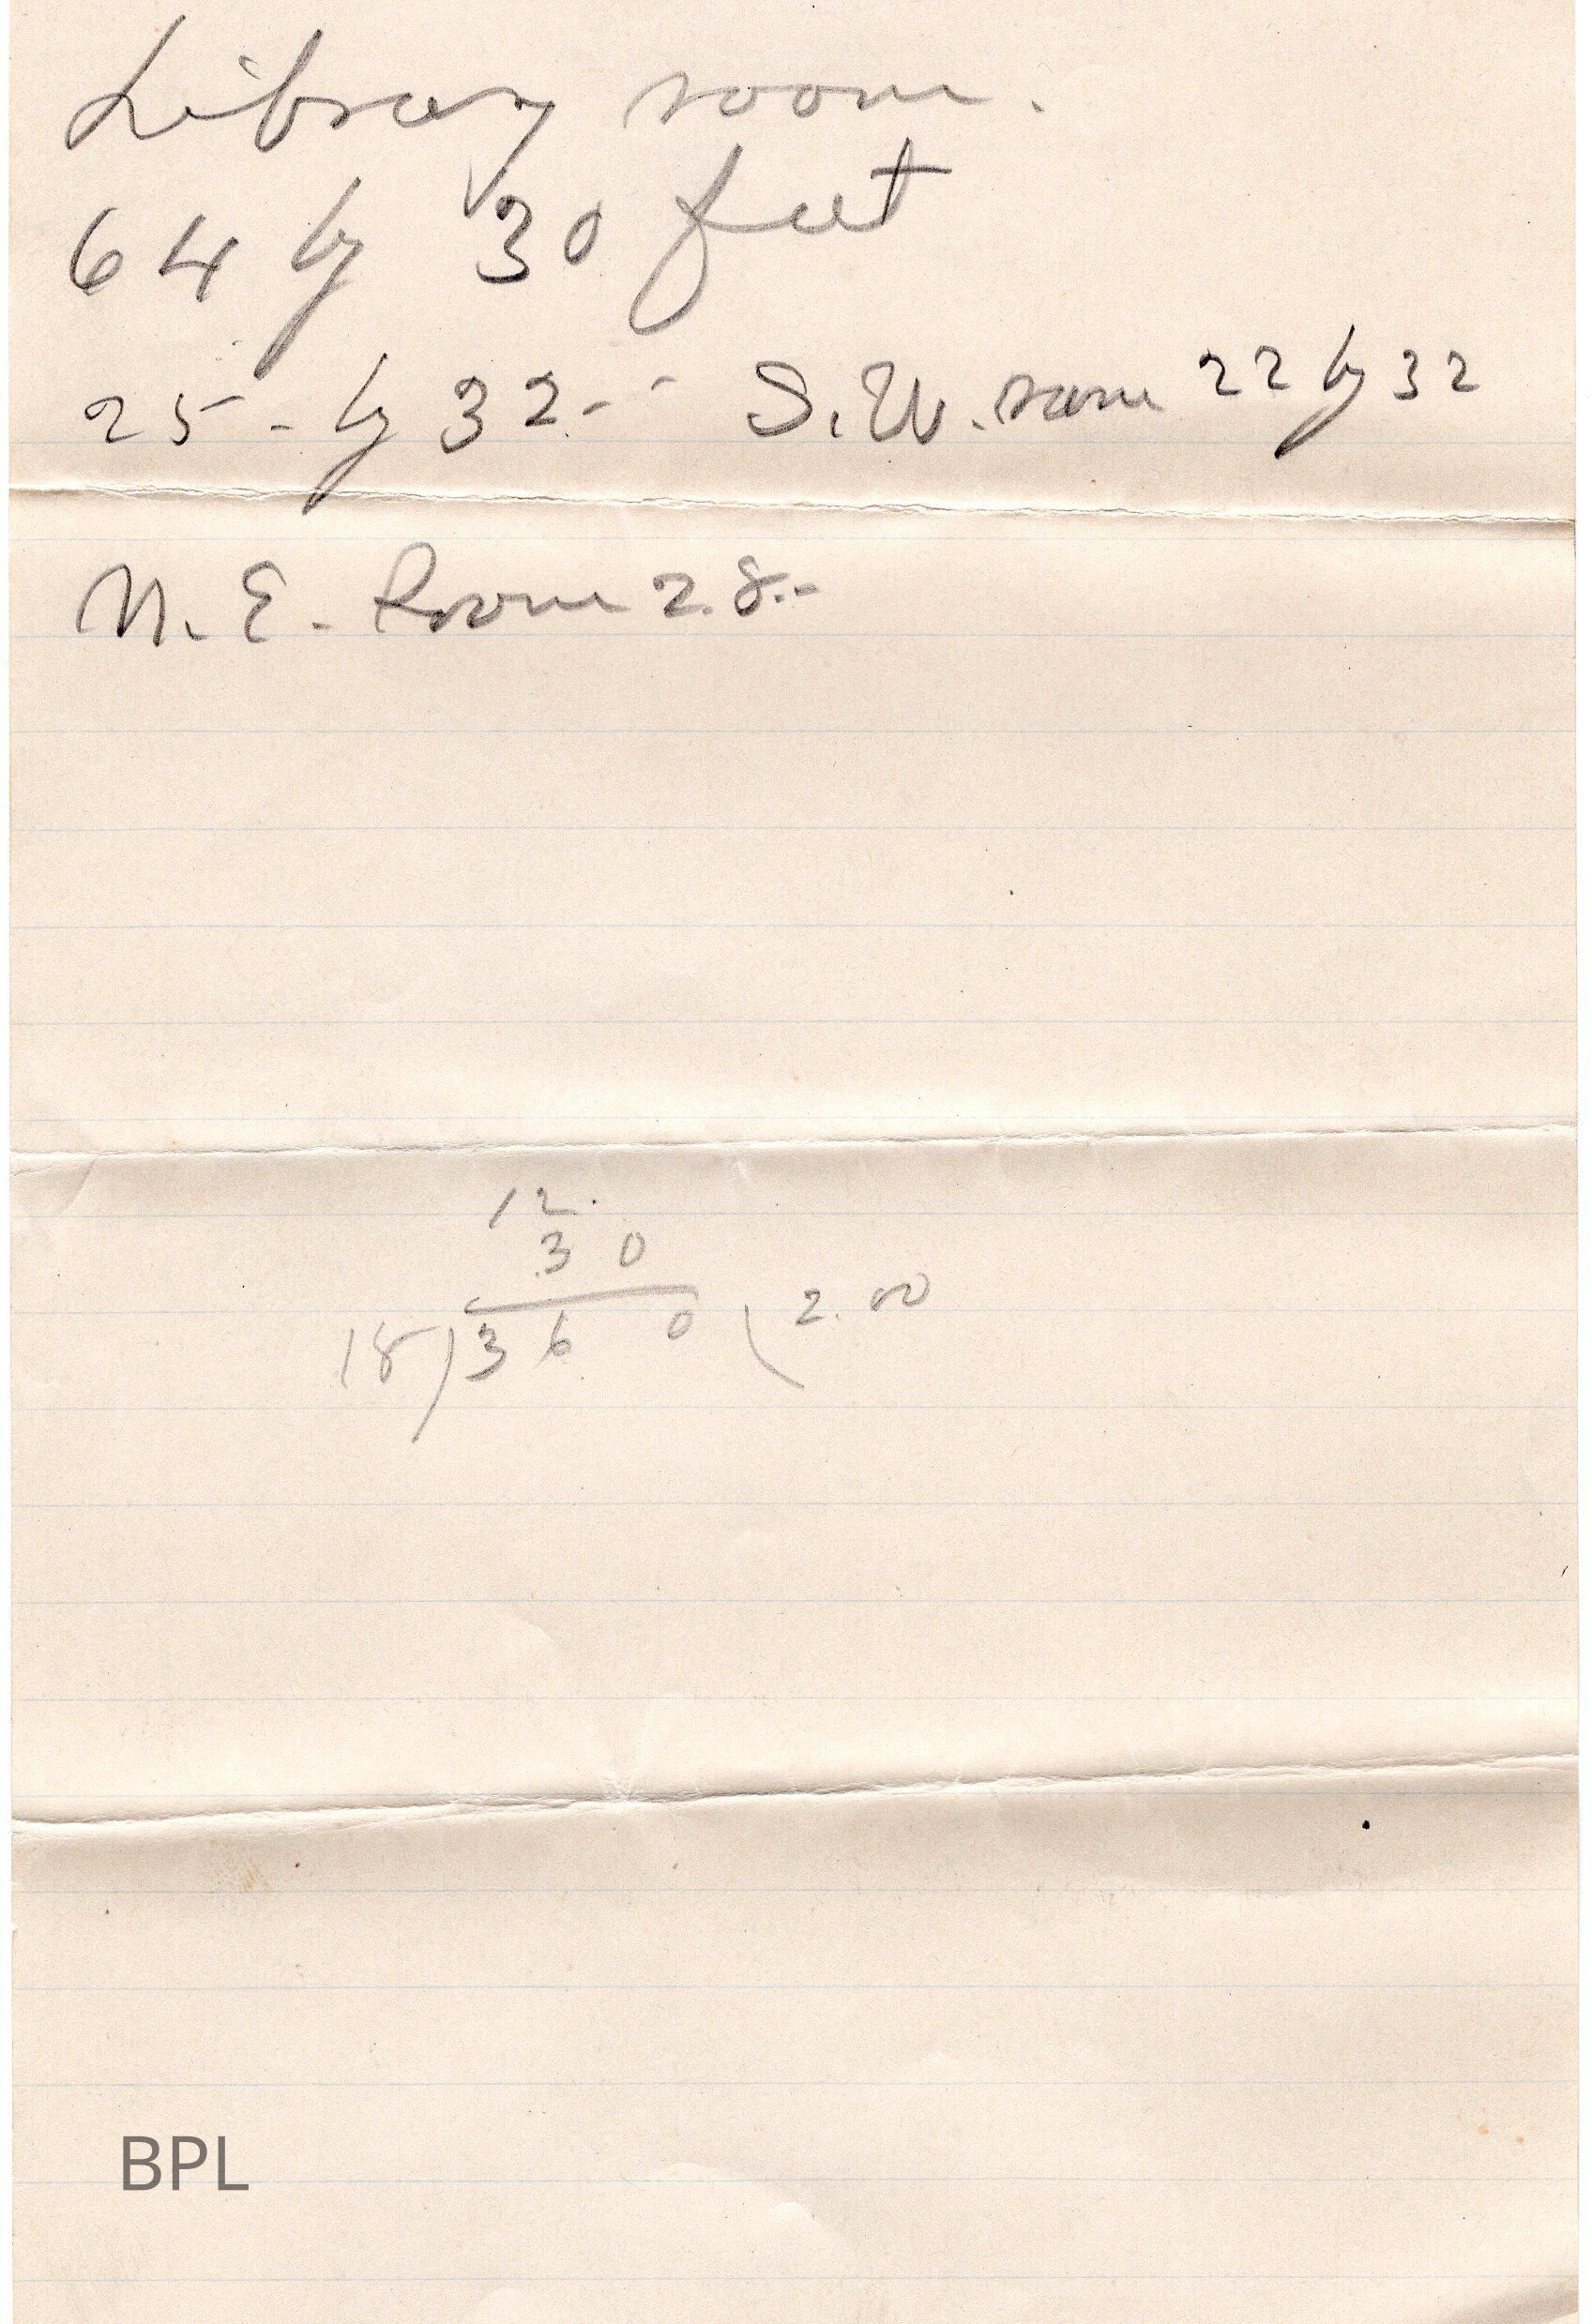 Library room.
64 by 30 feet
25 - by 32 - - S. W. room 22 by 32
N. E. Room 28.-
12.
30
18)360(2.00
BPL